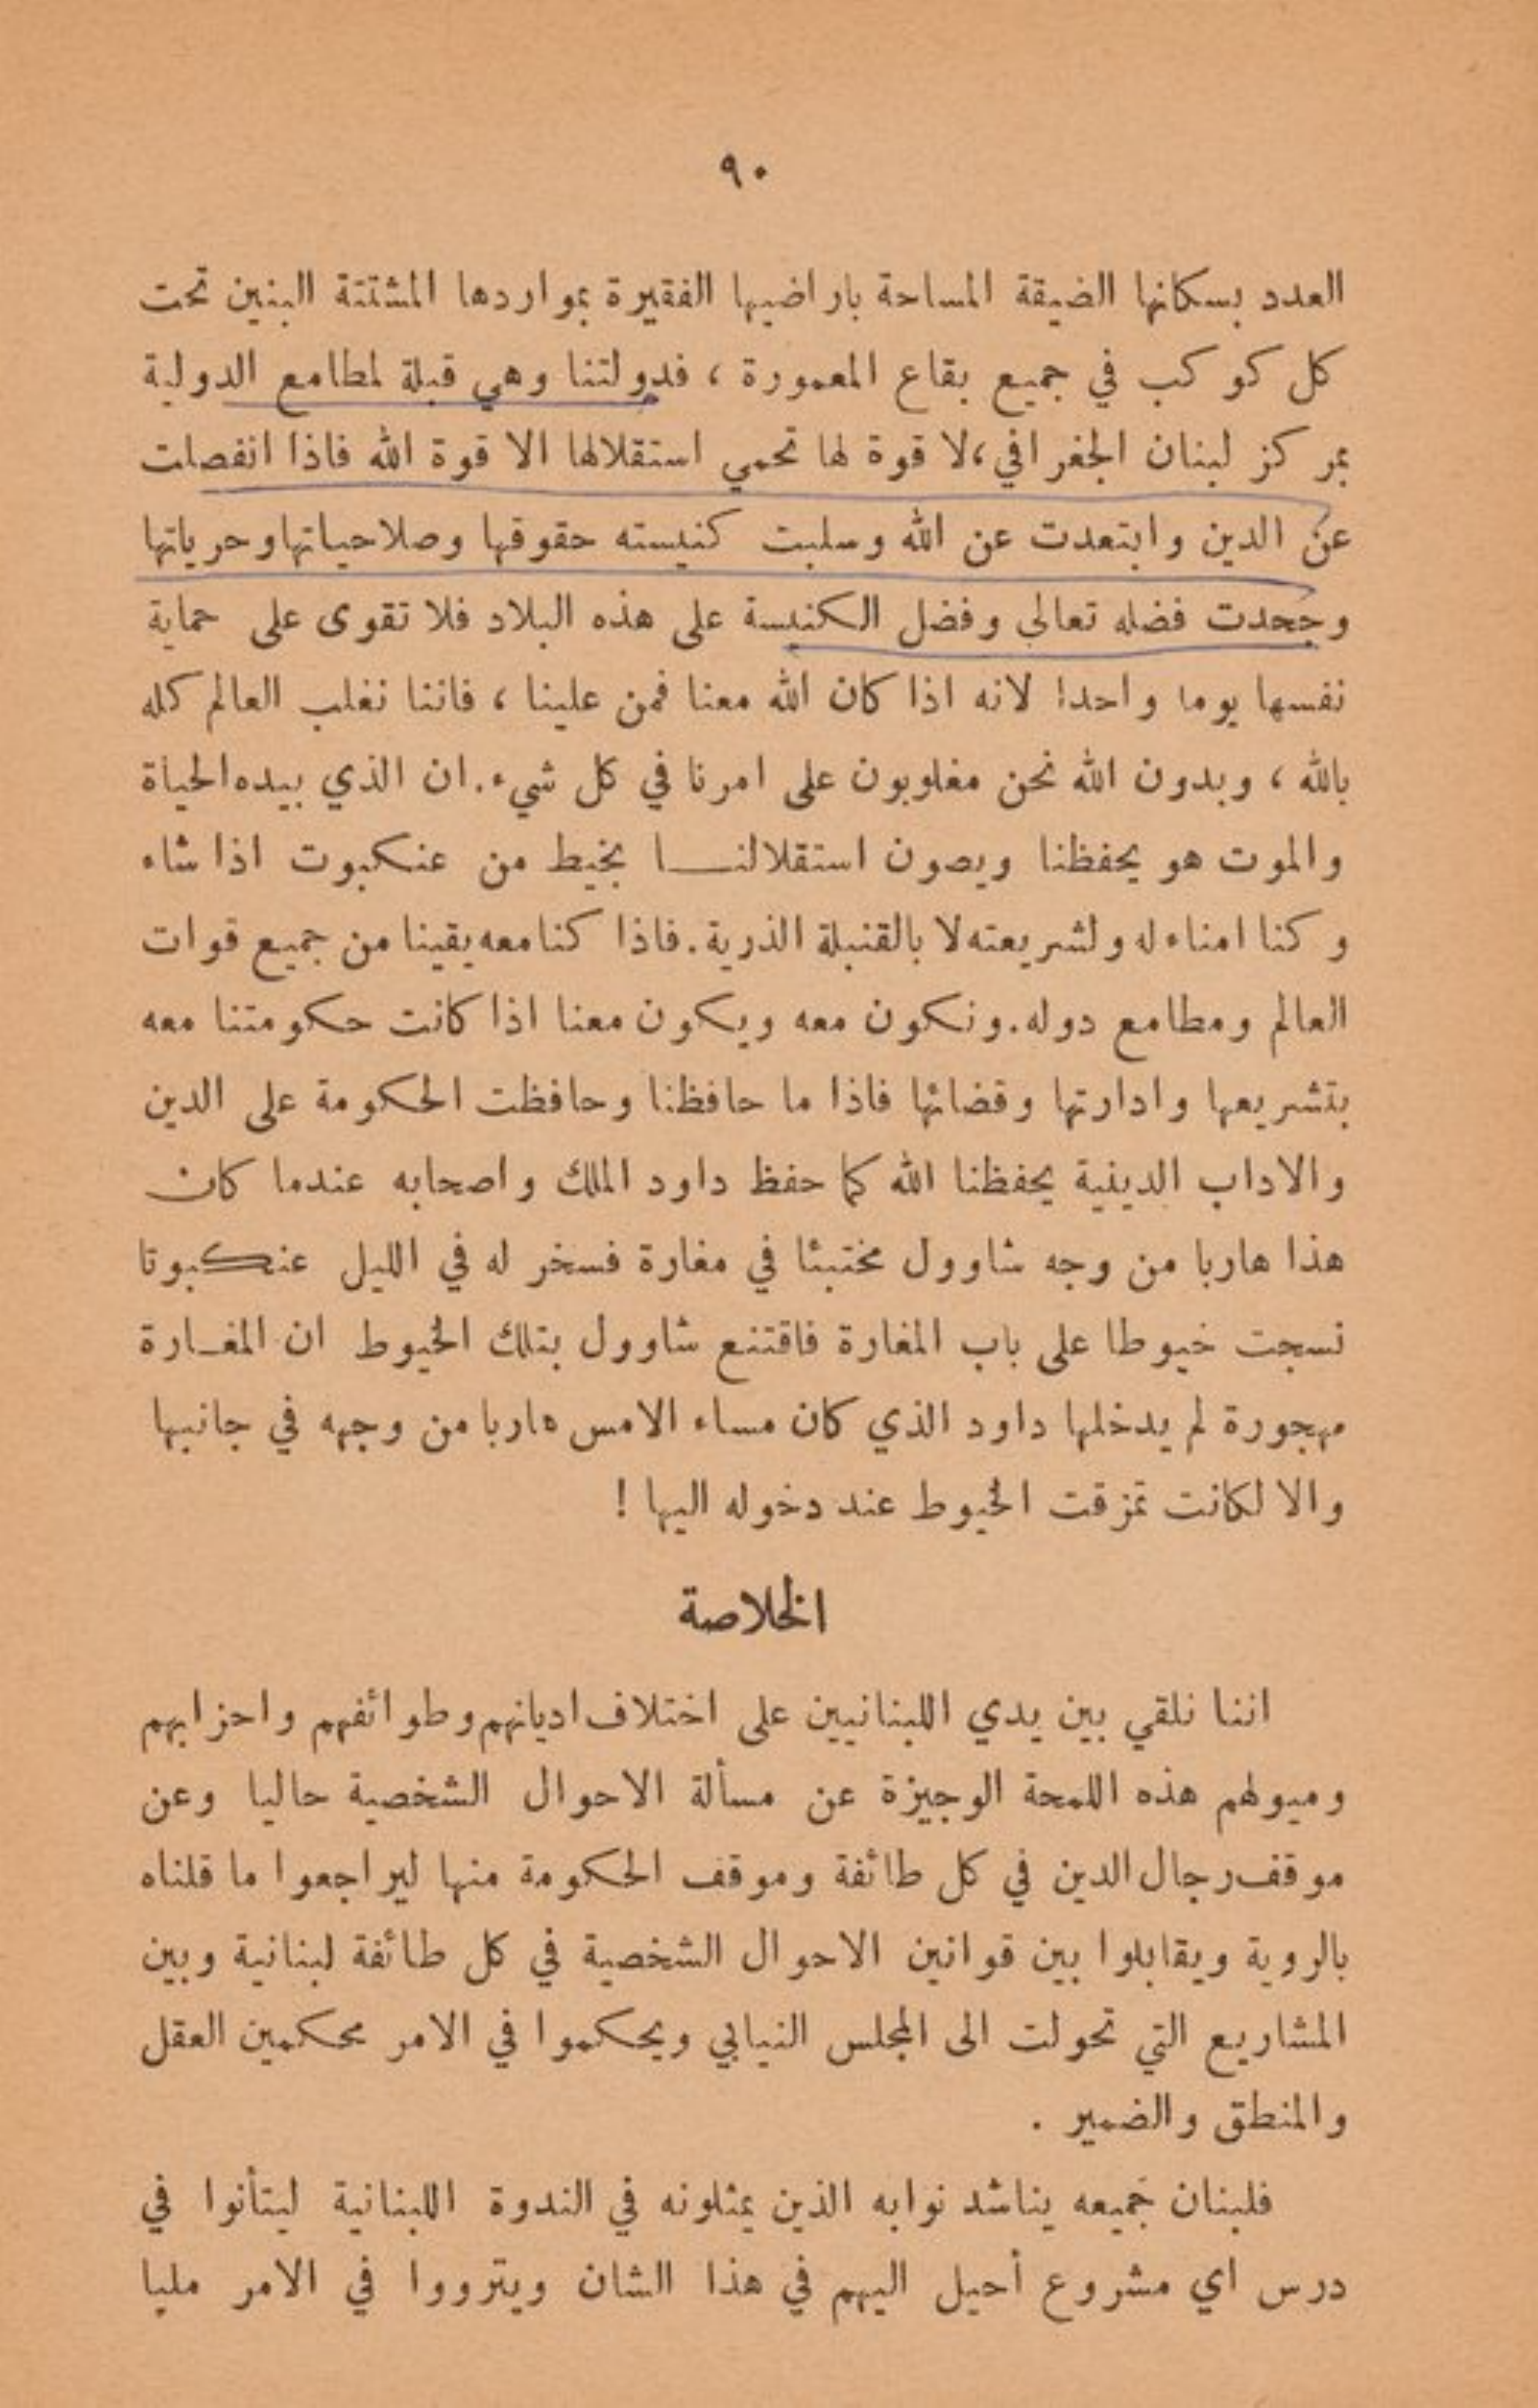 ٩٠
العدد بسكانها الضيقة المساحة باراضيها الفقيرة بمواردها المشتتة البنين تحت
كل كوكب في جميع بقاع المعمورة ، فدولتنا وهي قبلة لمطامع الدولية
بمركز لبنان الجغرافي ، لا قوة لها تحمي استقلالها الا قوة الله فاذا انفصلت
عن الدين وابتعدت عن الله وسلبت كنيسته حقوقها وصلاحياتها وحرياتها
وجحدت فضله تعالى وفضل الكنيسة على هذه البلاد فلا تقوى على حماية
نفسها يوما واحدا لانه اذا كان الله معنا فمن علينا ، فاننا نغلب العالم كله
بالله ، وبدون الله نحن مغلوبون على امرنا في كل شيء. ان الذي بيده الحياة
والموت هو يحفظنا ويصون استقلالنـــا بخيط من عنكبوت اذا شاء
وكنا امناء له ولشريعته لا بالقنبلة الذرية. فاذا كنا معه يقينا من جميع قوات
العالم ومطامع دوله. ونكون معه ويكون معنا اذا كانت حكومتنا معه
بتشريعها وادارتها وقضائها فاذا ما حافظنا وحافظت الحكومة على الدين
والاداب الدينية يحفظنا الله كما حفظ داود الملك واصحابه عندما كان
هذا هاربا من وجه شاوول مختبئا في مغارة فسخر له في الليل عنكبوتا
نسجت خيوطا على باب المغارة فاقتنع شاوول بتلك الخيوط ان المغـارة
مهجورة لم يدخلها داود الذي كان مساء الامس هاربا من وجهه في جانبها
والا لكانت تمزقت الخيوط عند دخوله اليها !
الخلاصة
اننا نلقي بين يدي اللبنانيين على اختلاف اديانهم وطوائفهم واحزابهم
وميولهم هذه اللمحة الوجيزة عن مسألة الاحوال الشخصية حاليا وعن
موقف رجال الدين في كل طائفة وموقف الحكومة منها ليراجعوا ما قلناه
بالروية ويقابلوا بين قوانين الاحوال الشخصية في كل طائفة لبنانية وبين
المشاريع التي تحولت الى المجلس النيابي ويحكموا في الامر محكمين العقل
والمنطق والضمير .
فلبنان جميعه يناشد نوابه الذين يمثلونه في الندوة اللبنانية ليتأنوا في
درس اي مشروع أحيل اليهم في هذا الشان ويترووا في الامر مليا